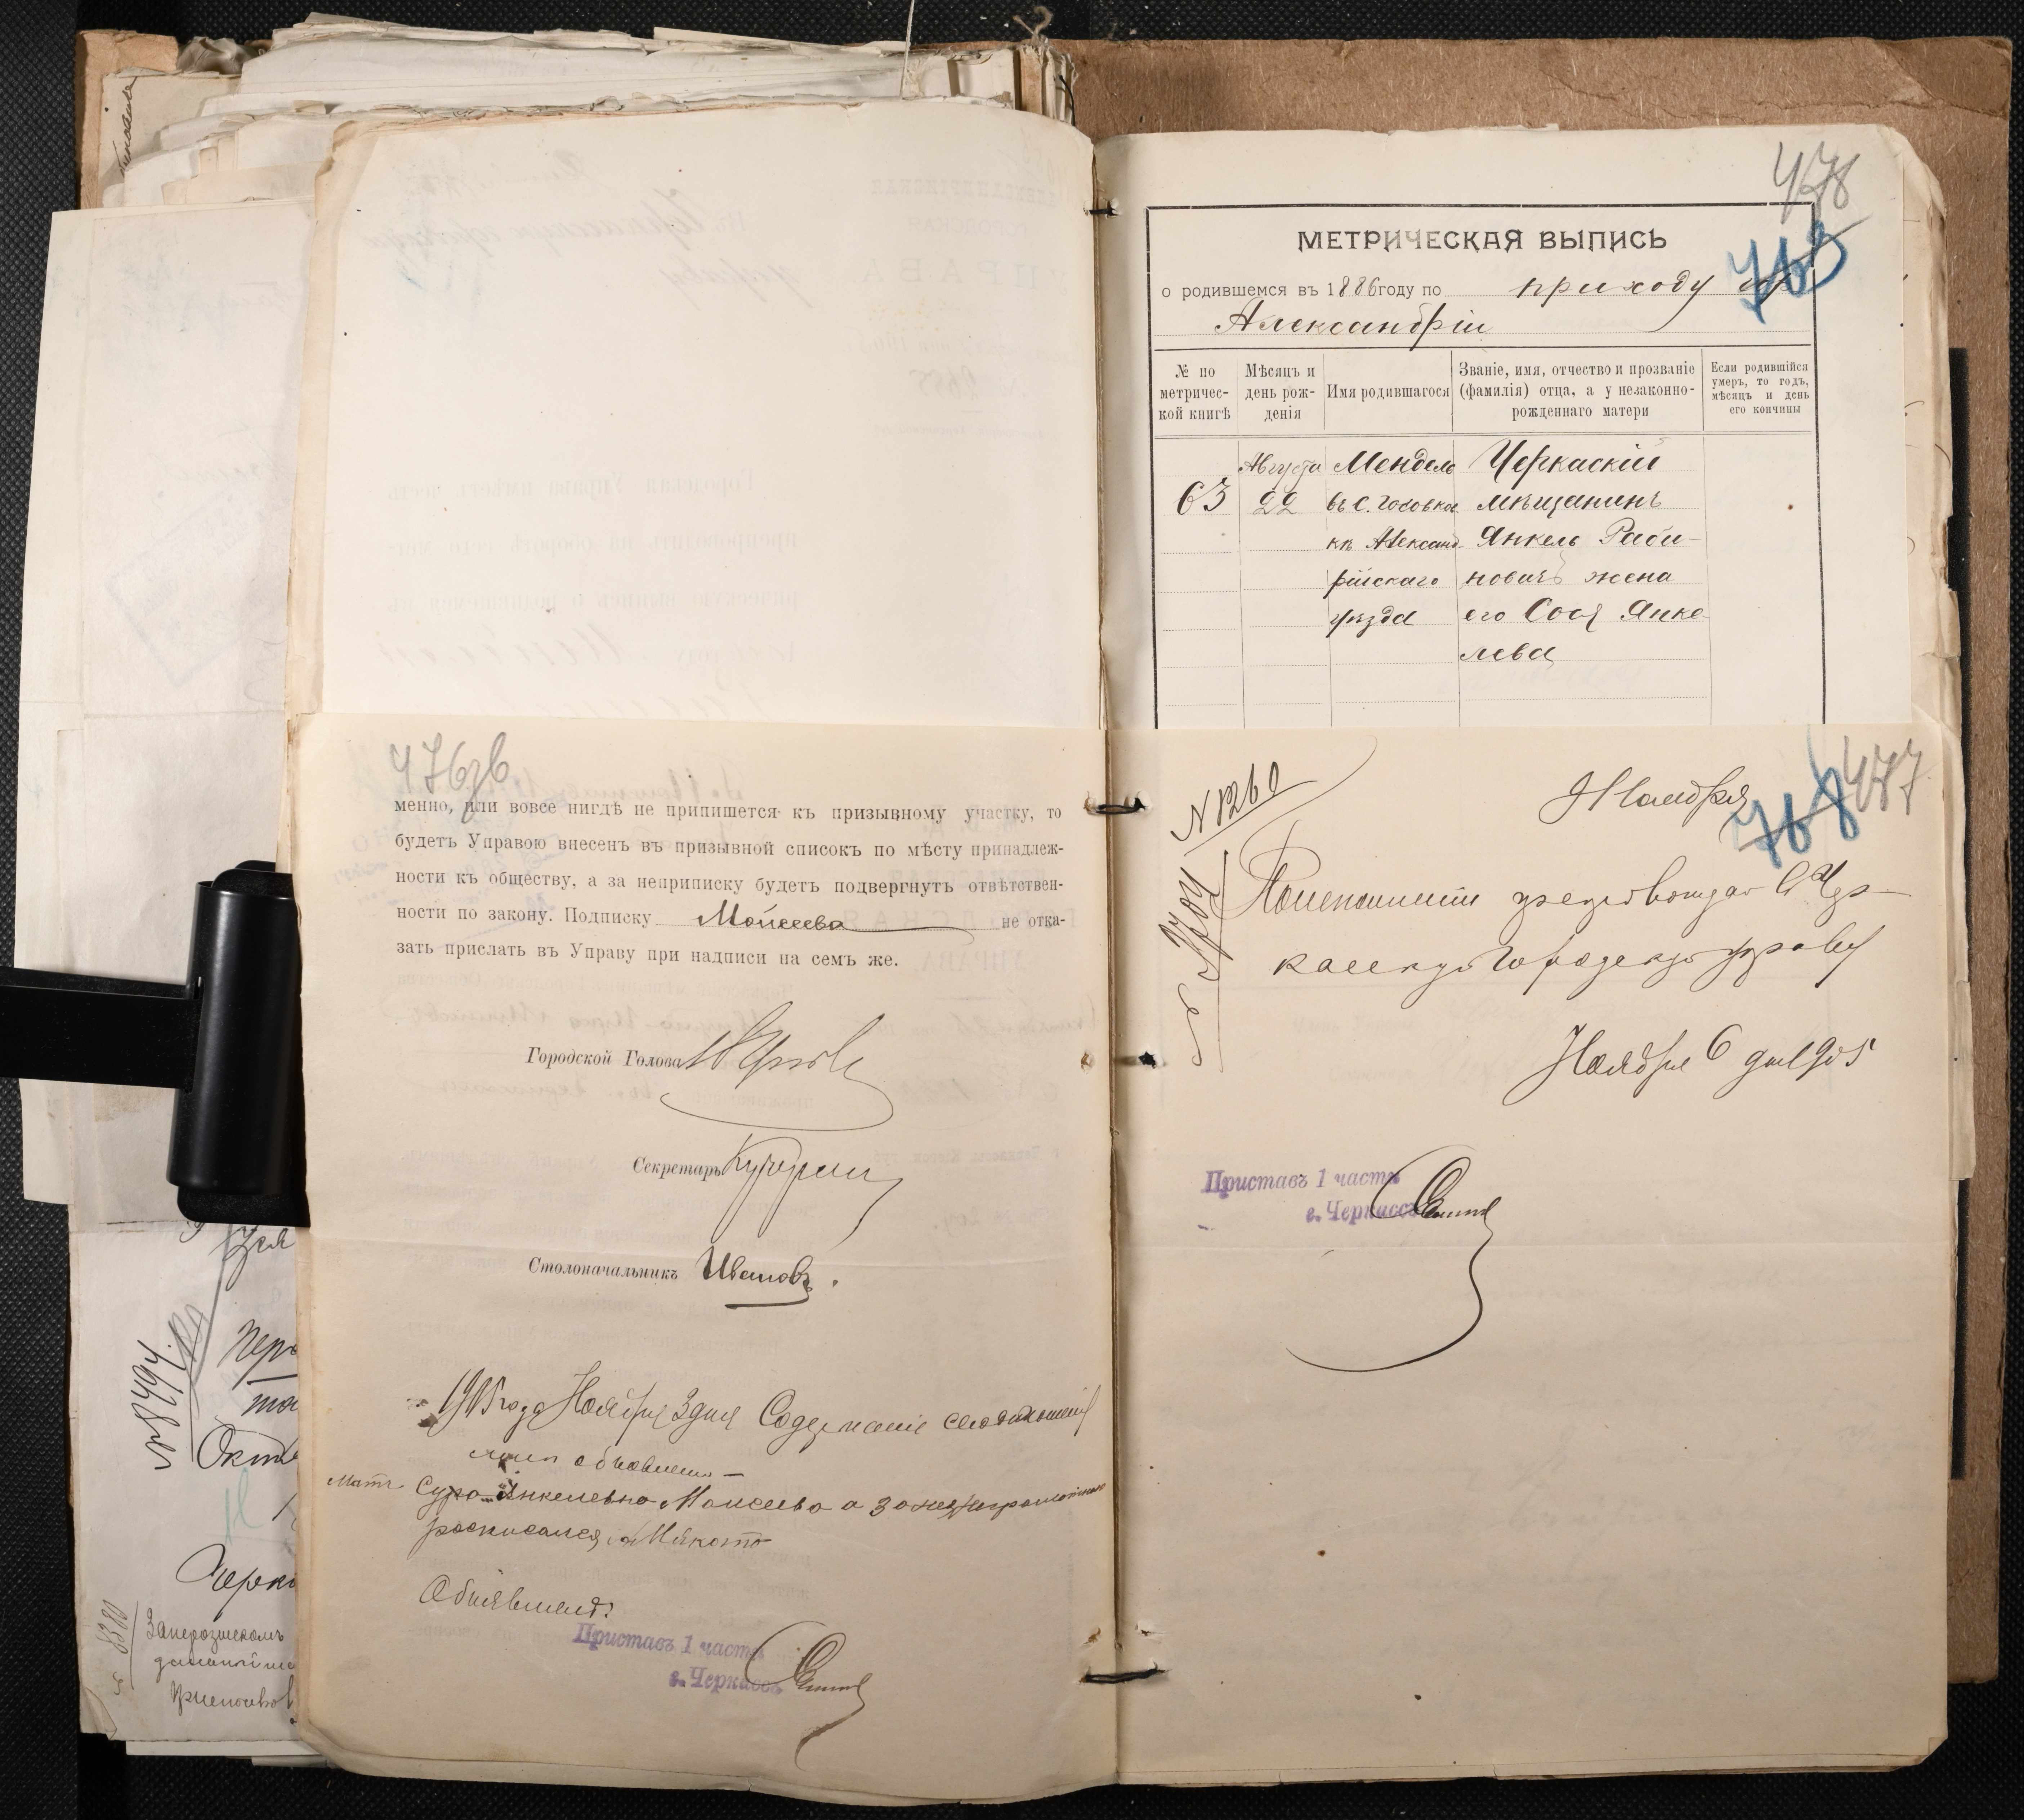 478
МЕТРИЧЕСКАЯ ВЫПИСЬ
763
о родившемся въ 1886 году по приходу гор
Александріи
№ по метричес-кой книгѣ
Мѣсяцъ и день рож-денія
Имя родившагося
Званіе, имя, отчество и прозваніе (фамилія) отца, а у незаконно-рожденнаго матери
Если родившійся умеръ, то годъ, мѣсяцъ и день его кончины
Августа Мендель Черкаскій
63 22 въ с. мѣщанинъ
къ Александ- Янкель Раби-
рійскаго новичъ жена
уѣзда его Сося Янке-
лева
476
менно, или вовсе нигдѣ не припишется къ призывному участку, то
будетъ Управою внесенъ въ призывной списокъ по мѣсту принадлеж-
ности къ обществу, а за неприписку будетъ подвергнутъ отвѣтствен-
ности по закону. Подписку Мойсеева не отка-
зать прислать въ Управу при надписи на семъ же.
Городской Голова
Секретарь
Столоначальникъ Ивановъ.
1905 года Ноября 3 дня Содержаніе сего отношенія
мнѣ объявлено —
Мать Сура Янкелевна Моисеева а за неграмотную
росписался
Объявилъ:
Приставъ 1 части
г. Черкассъ
477
768
Ноября
№ 1260
Исполненный препровождаю въ Чер-
касскую Городскую управу
Ноября 6 дня 1905
Приставъ 1 части
г. Черкассъ
№ 8494
Октя
Черка
8380